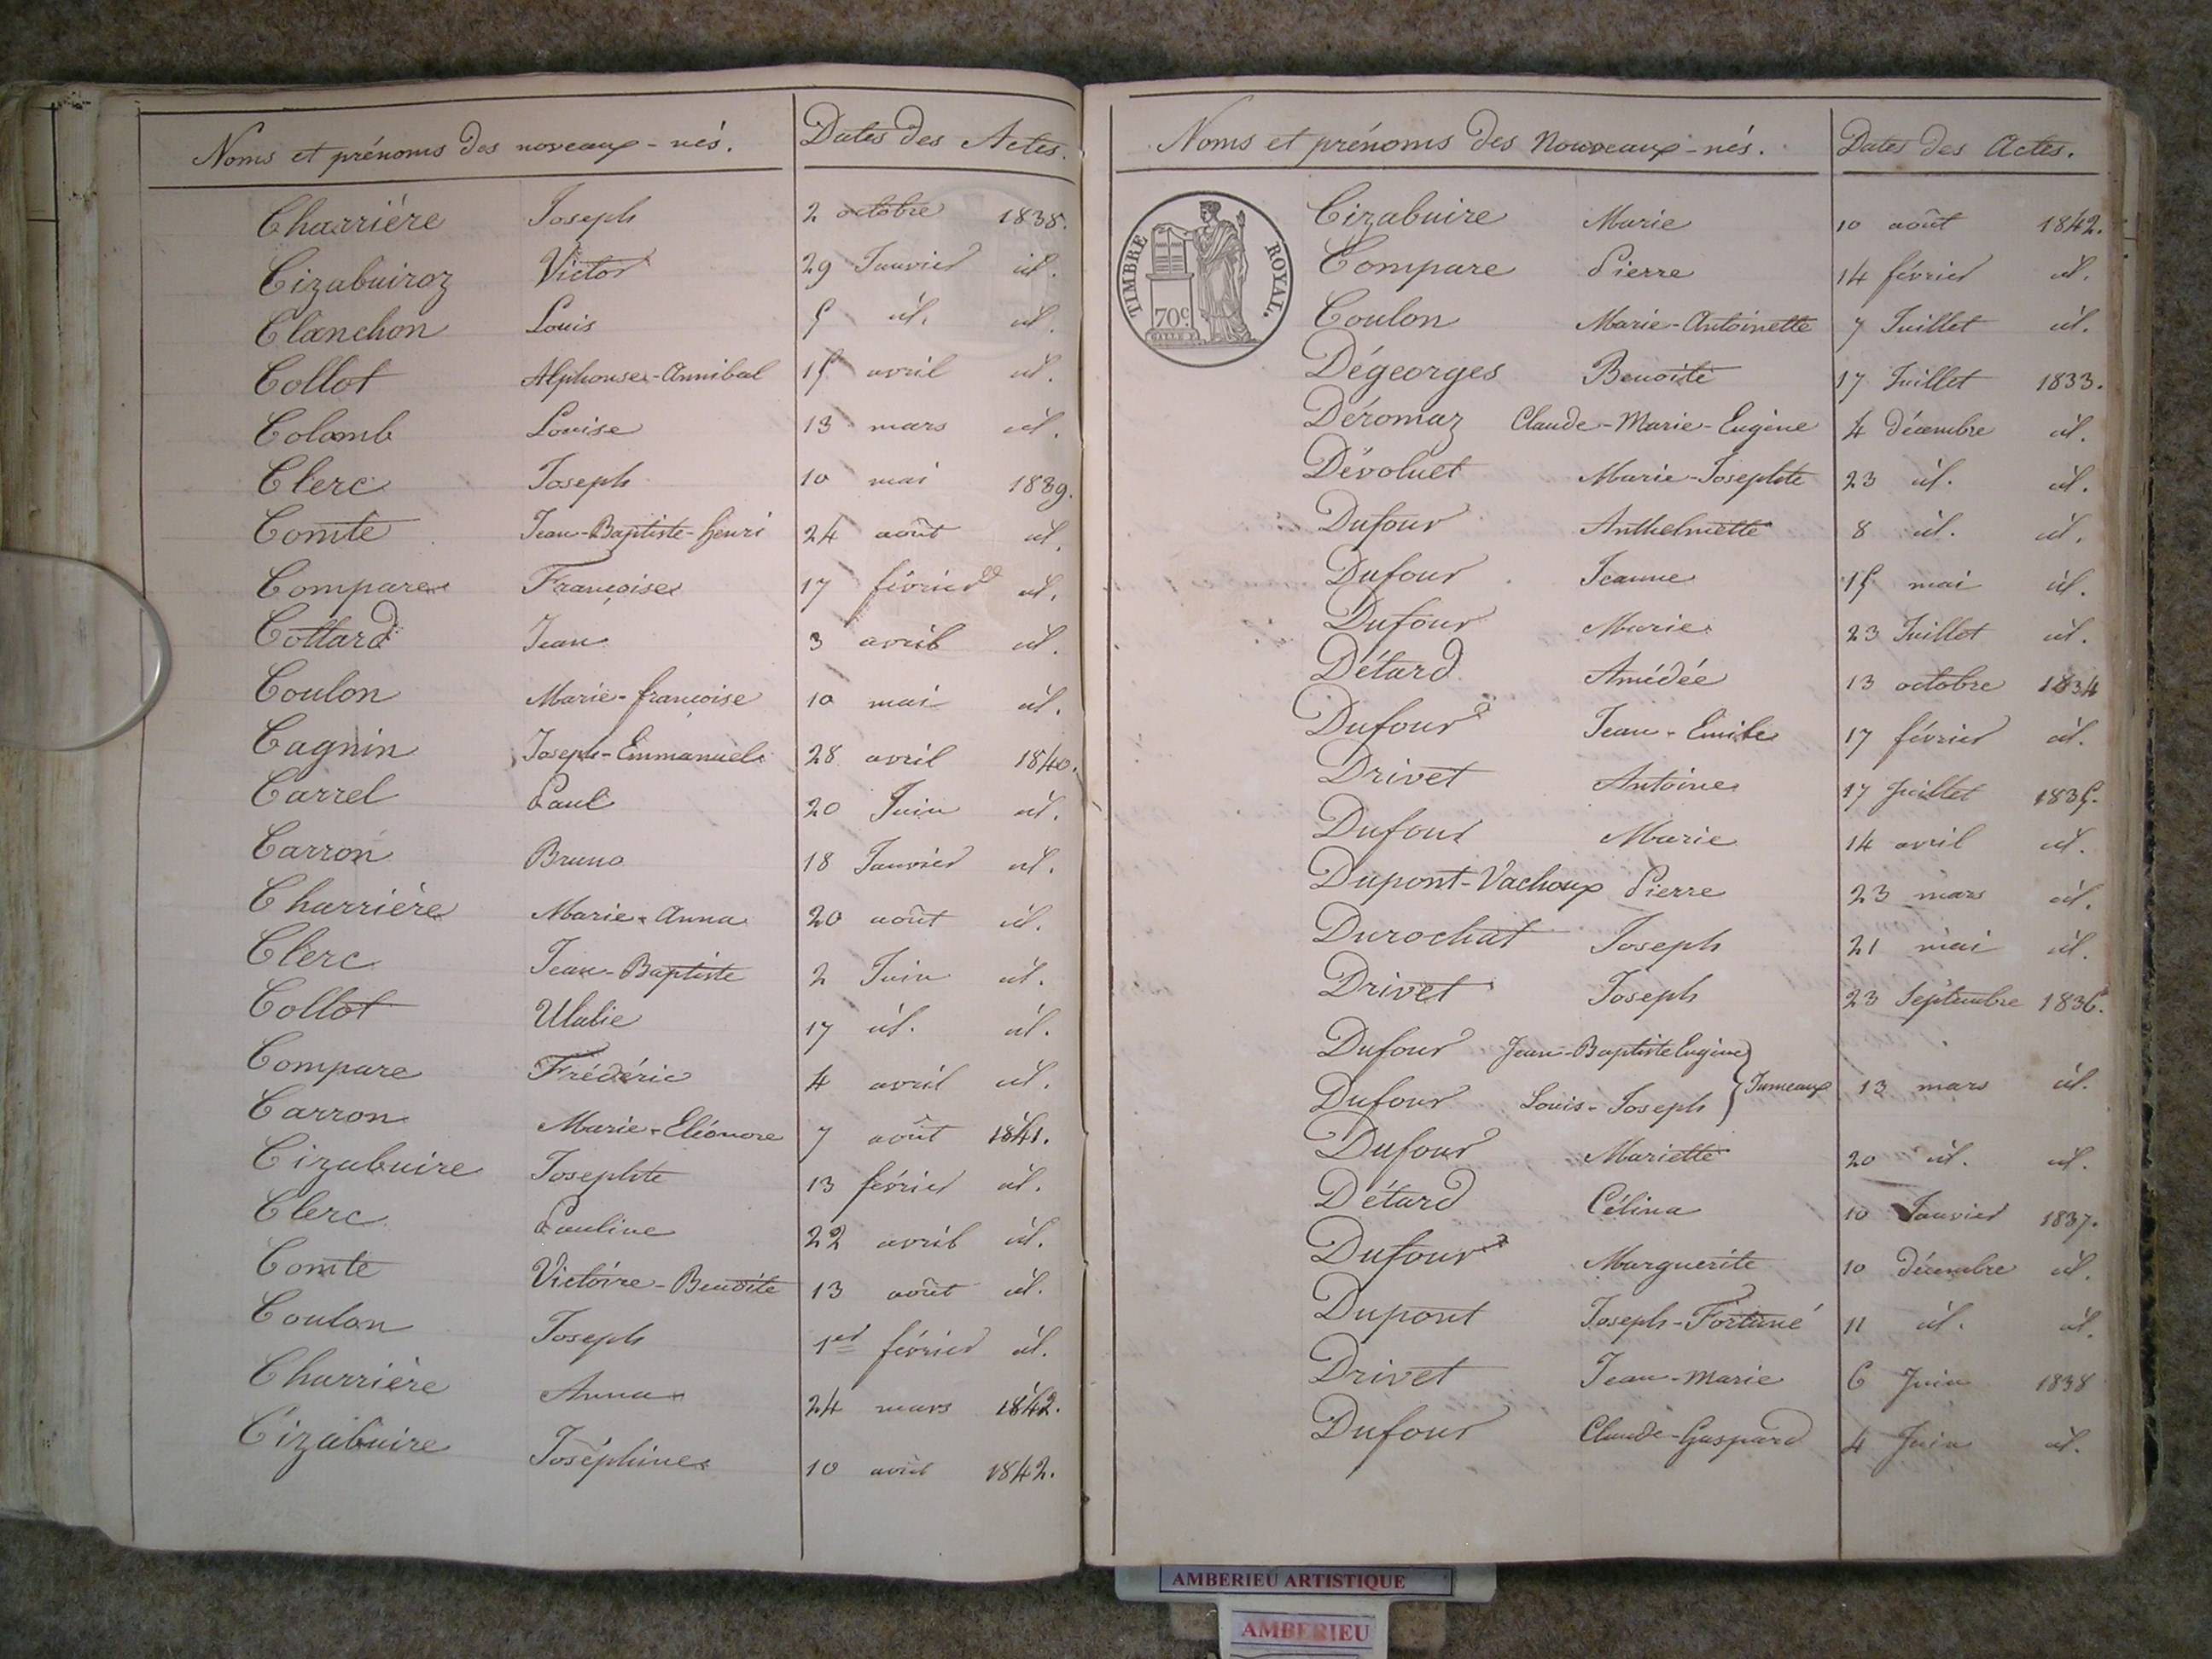 Noms et prénoms des noveaux-nés. Dates des Actes.
Charrière Joseph 2 octobre 1838.
Cizabuiroz Victor 29 Janvier id.
Clanchon Louis 5 id. id.
Collot Alphonse-Annibal 15 avril id.
Colomb Louise 13 mars id.
Clerc Joseph 10 mai 1839.
Comte Jean-Baptiste-henri 24 août id.
Compare Françoise 17 février id.
Cottard Jean 3 avril id.
Coulon Marie-françoise 10 mai id.
Cagnin Joseph-Emmanuel 28 avril 1840.
Carrel Paul 20 Juin id.
Carron Bruno 18 Janvier id.
Charrière Marie-Anna 20 août id.
Clerc Jean-Baptiste 2 Juin id.
Collot Ulalie 17 id. id.
Compare Frédéric 4 avril id.
Carron Marie-Eléonore 7 août 1841.
Cizabuire Josephte 13 février id.
Clerc Pauline 22 avril id.
Comte Victoire-Benoite 13 août id.
Coulon Joseph 1er février id.
Charrière Anna 24 mars 1842.
Cizabuire Joséphine 10 août 1842.
Noms et prénoms des Nouveaux-nés. Dates des Actes.
TIMBRE ROYAL.
70c.
Cizabuire Marie 10 août 1842.
Compare Pierre 14 février id.
Coulon Marie-Antoinette 7 Juillet id.
Dégeorges Benoite 17 Juillet 1833.
Déromaz Claude-Marie-Eugène 4 décembre id.
Dévoluet Marie-Josephte 23 id. id.
Dufour Anthelmette 8 id. id.
Dufour Jeanne 15 mai id.
Dufour Marie 23 Juillet id.
Détard Amédée 13 octobre 1834
Dufour Jean-Emile 17 février id.
Drivet Antoine 17 Juillet 1835.
Dufour Marie 14 avril id.
Dupont-Vachoux Pierre 23 mars id.
Durochat Joseph 21 mai id.
Drivet Joseph 23 Septembre 1836.
Dufour Jean-Baptiste Eugène
Dufour Louis-Joseph Jumeaux 13 mars id.
Dufour Mariette 20 id. id.
Détard Célina 10 Janvier 1837.
Dufour Marguerite 10 décembre id.
Dupont Joseph-Fortuné 11 id. id.
Drivet Jean-Marie 6 Juin 1838
Dufour Claude-Gaspard 4 Juin id.
AMBERIEU ARTISTIQUE
AMBERIEU